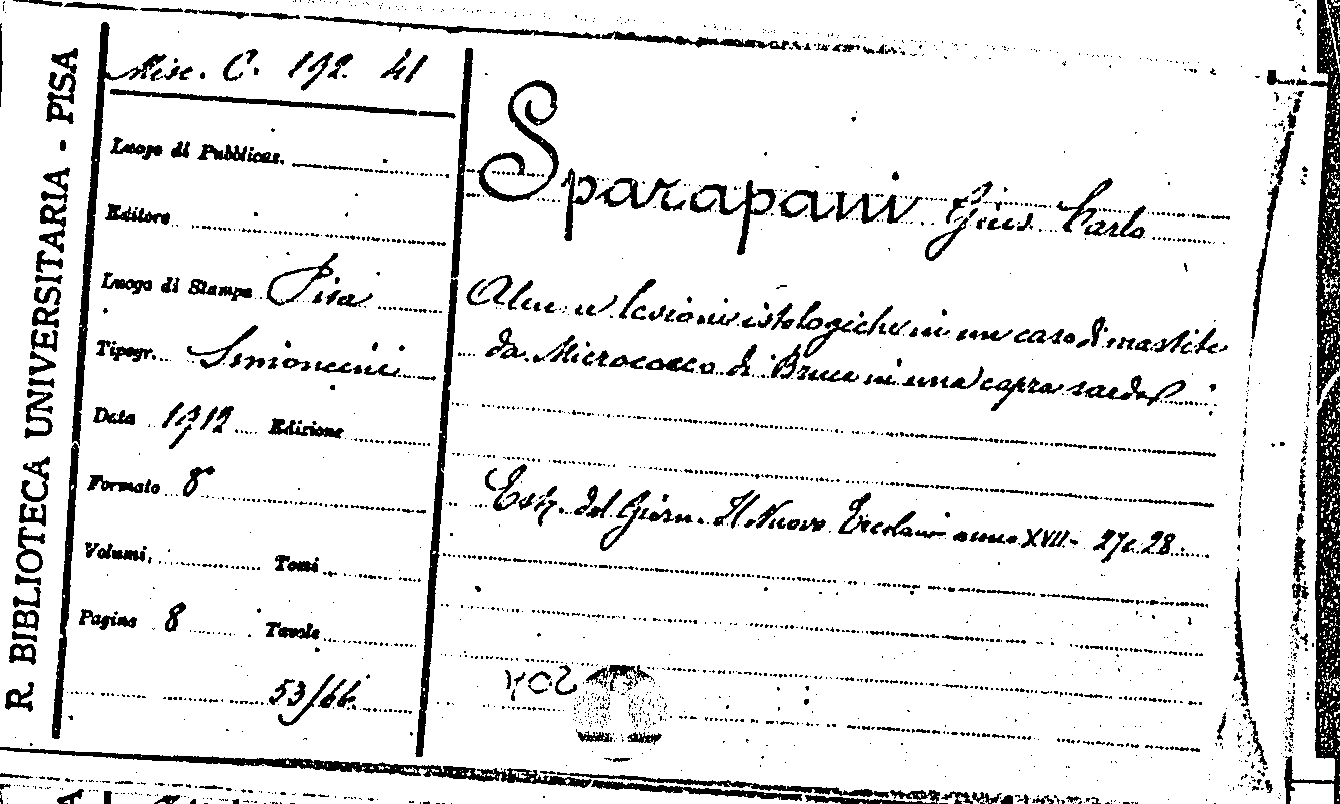 R. BIBLIOTECA UNIVERSITARIA - PISA
Misc. C. 192. 41
Luogo di Pubblicaz.
Editore
Luogo di Stampa Pisa
Tipogr. Simoncini
Data 1912 Edizione
Formato 8°
Volumi Tomi
Pagine 8 Tavole
53/66
Sparapani Gius. Carlo
Alcune lesioni istologiche in un caso di mastite
da Micrococco di Bruce in una capra sarda
Estr. dal Giorn. Il Nuovo Ercolani anno XVII - 27 e 28.